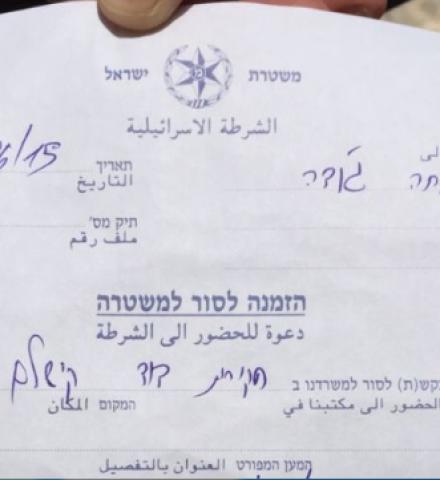 משטרת ישראל
الشرطة الاسرائيلية
תאריך /15
التاريخ
ג'ודה
תיק מס'
ملف رقم
הזמנה לסור למשטרה
دعوة للحضور الى الشرطة
קש(ת) לסור למשרדנו ב חקירות דוד קישלה
الحضور الى مكتبنا في المقום المكان
המען המפורט العنوان بالتفصيل